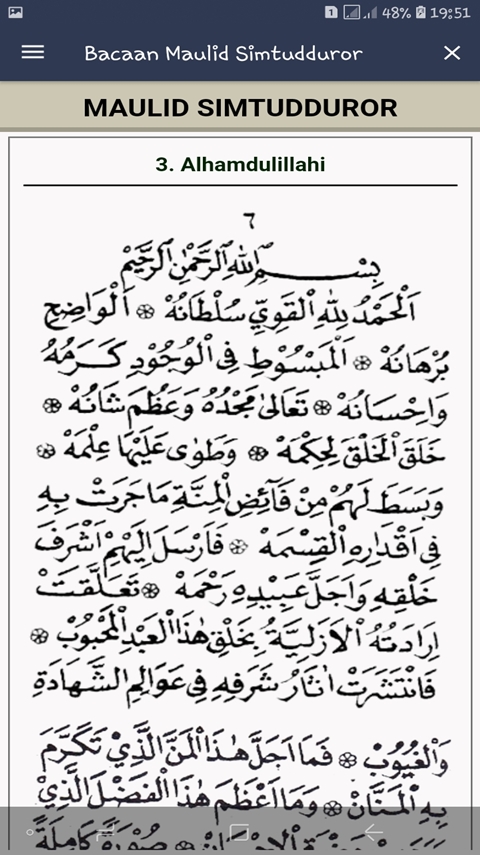 1 48% 19:51
Bacaan Maulid Simtudduror
MAULID SIMTUDDUROR
3. Alhamdulillahi
٦
بِسْمِ اللهِ الرَّحْمٰنِ الرَّحِيْمِ
اَلْحَمْدُ لِلّٰهِ الْقَوِيِّ سُلْطَانُهْ ۞ اَلْوَاضِحِ
بُرْهَانُهْ ۞ اَلْمَبْسُوْطِ فِى الْوُجُوْدِ كَرَمُهُ
وَاِحْسَانُهْ ۞ تَعَالىٰ مَجْدُهُ وَعَظُمَ شَانُهْ ۞
خَلَقَ الْخَلْقَ لِحِكْمَهْ ۞ وَطَوٰى عَلَيْهَا عِلْمَهْ ۞
وَبَسَطَ لَهُمْ مِنْ فَآئِضِ الْمِنَّةِ مَاجَرَتْ بِهِ
فِى اَقْدَارِهِ الْقِسْمَهْ ۞ فَاَرْسَلَ اِلَيْهِمْ اَشْرَفَ
خَلْقِهِ وَاَجَلَّ عَبِيْدِهِ رَحْمَهْ ۞ تَعَلَّقَتْ
اِرَادَتُهُ الْاَزَلِيَّةُ بِخَلْقِ هٰذَا الْعَبْدِ الْمَحْبُوْبْ ۞
فَانْتَشَرَتْ اٰثَارُ شَرَفِهِ فِى عَوَالِمِ الشَّهَادَةِ
وَالْغُيُوْبْ ۞ فَمَا اَجَلَّ هٰذَا الْمَنَّ الَّذِيْ تَكَرَّمَ
بِهِ الْمَنَّانْ ۞ وَمَا اَعْظَمَ هٰذَا الْفَضْلَ الَّذِيْ
الْاِحْسَانْ ۞ صُوْرَةً كَامِلَةً